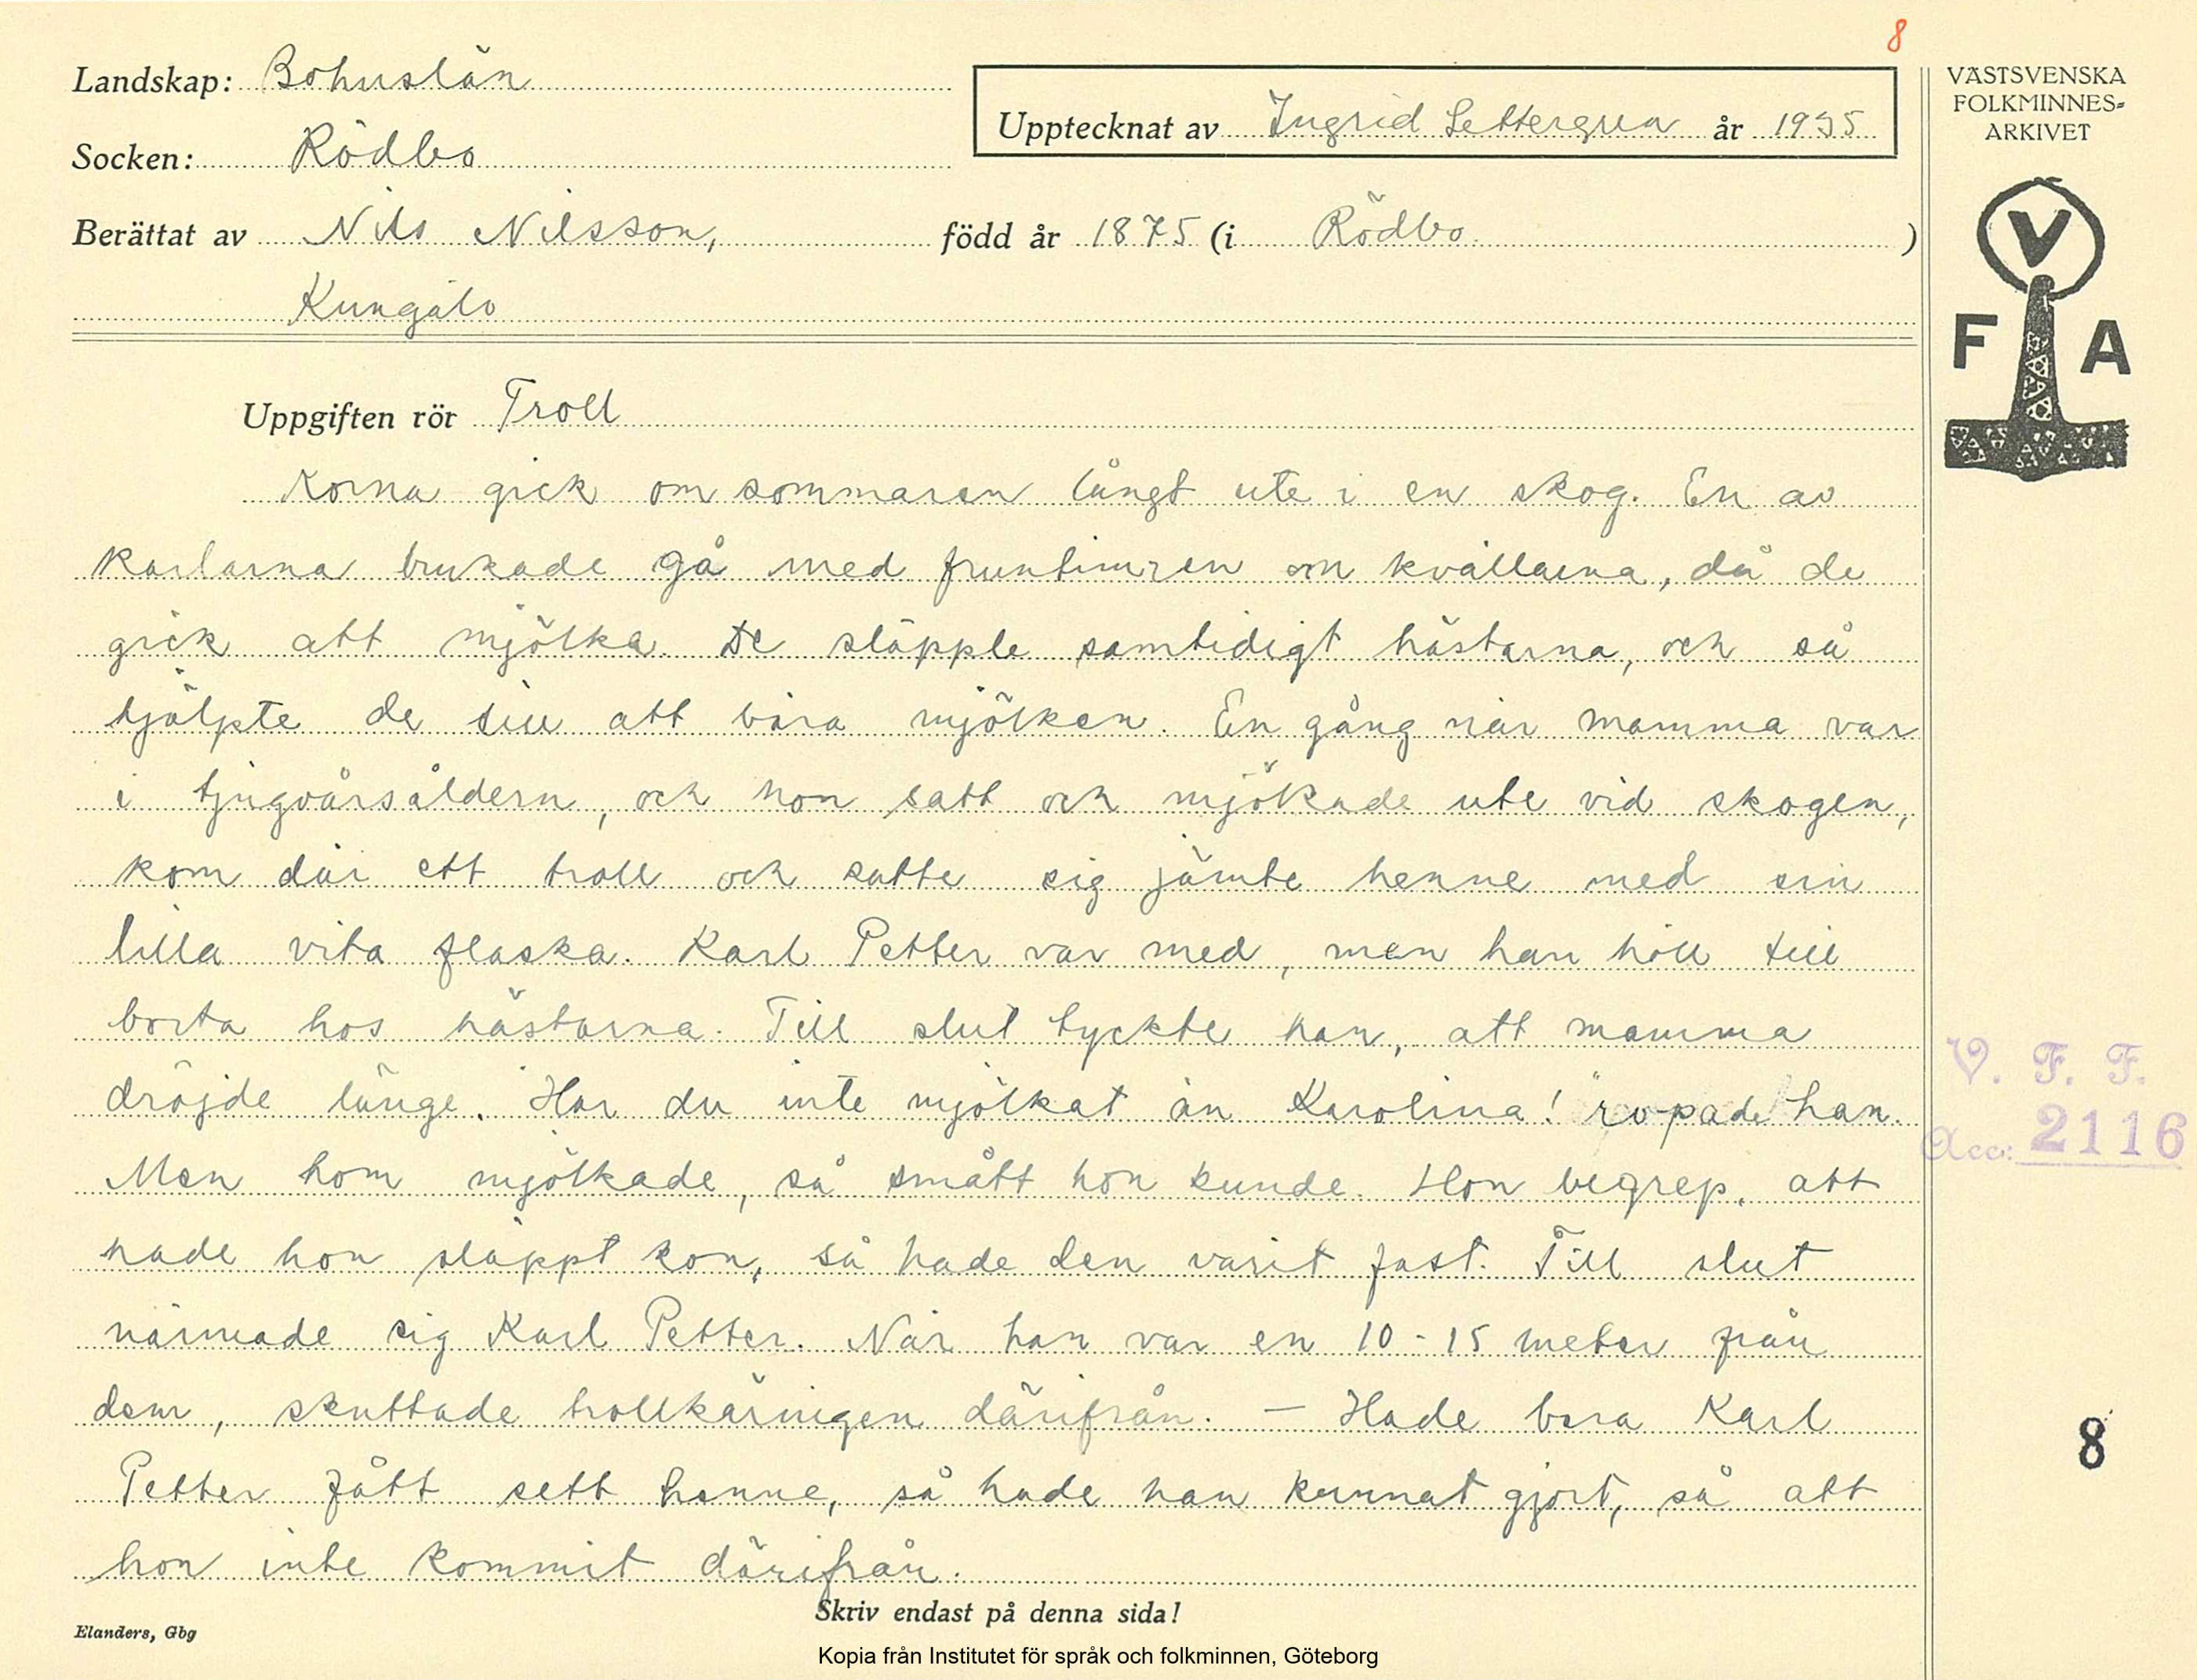 8
Landskap: Bohuslän
Socken: Rödbo
Upptecknat av Ingrid Settergren år 1935
VÄSTSVENSKA
FOLKMINNES-
ARKIVET
Berättat av Nils Nilsson, född år 1875 (i Rödbo. )
Kungälv
V
F A
Uppgiften rör Troll
Korna gick om sommaren långt ute i en skog. En av
karlarna brukade gå med fruntimren om kvällarna, då de
gick att mjölka. De släppte samtidigt hästarna, och så
hjälpte de till att bära mjölken. En gång när mamma var
i tjugoårsåldern, och hon satt och mjölkade ute vid skogen,
kom där ett troll och satte sig jämte henne med sin
lilla vita flaska. Karl Petter var med, men han höll till
borta hos hästarna. Till slut tyckte han, att mamma
dröjde länge. Har du inte mjölkat än Karolina! ropade han.
Men hom mjölkade, så smått hon kunde. Hon begrep, att
hade hon släppt kon, så hade den varit fast. Till slut
närmade sig Karl Petter. När han var en 10-15 meter från
dem, skuttade trollkäringen därifrån. — Hade bara Karl
Petter fått sett henne, så hade han kunnat gjort, så att
hon inte kommit därifrån.
V. F. F.
Acc: 2116
8
Skriv endast på denna sida!
Elanders, Gbg
Kopia från Institutet för språk och folkminnen, Göteborg